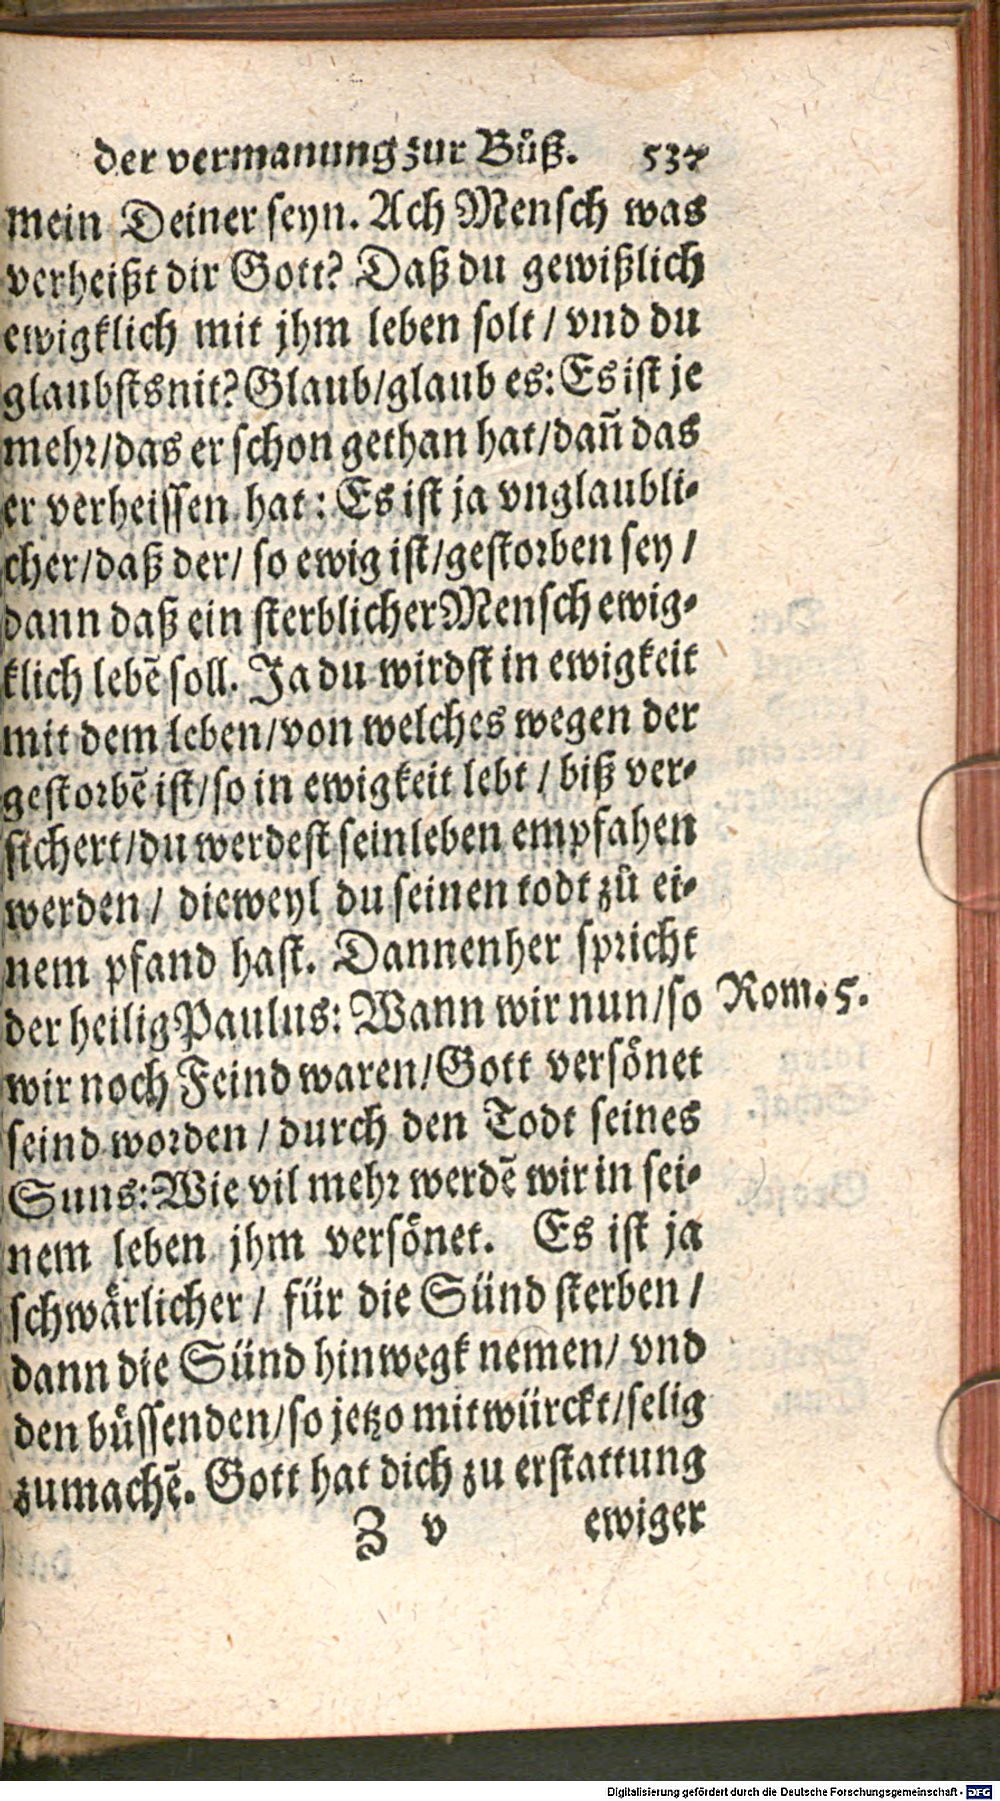 der vermanung zur Bůß. 537
mein Deiner seyn. Ach Mensch was
verheißt dir Gott? Daß du gewißlich
ewigklich mit jhm leben solt / vnd du
glaubsts nit? Glaub/glaub es: Es ist je
mehr/das er schon gethan hat/dañ das
er verheissen hat: Es ist ja vnglaubli-
cher/daß der/ so ewig ist/gestorben sey /
dann daß ein sterblicher Mensch ewig-
klich lebẽ soll. Ja du wirdst in ewigkeit
mit dem leben/von welches wegen der
gestorbẽ ist/so in ewigkeit lebt / biß ver-
sichert/du werdest sein leben empfahen
werden / dieweyl du seinen todt zů ei-
nem pfand hast. Dannenher spricht
der heilig Paulus: Wann wir nun/so
Rom. 5.
wir noch Feind waren/Gott versönet
seind worden / durch den Todt seines
Suns: Wie vil mehr werdẽ wir in sei-
nem leben jhm versönet. Es ist ja
schwärlicher / für die Sünd sterben /
dann die Sünd hinwegk nemen/ vnd
den bůssenden/so jetzo mitwürckt/selig
zumachẽ. Gott hat dich zu erstattung
Z v ewiger
Digitalisierung gefördert durch die Deutsche Forschungsgemeinschaft - DFG